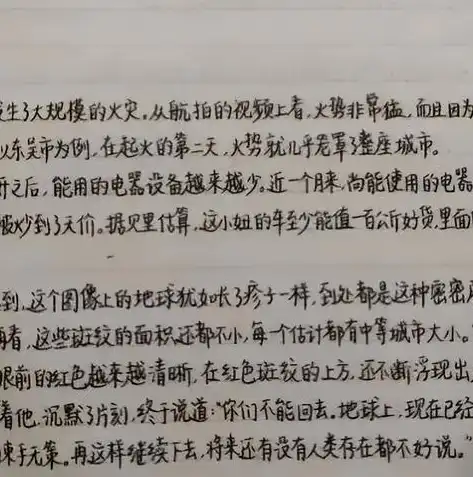 生了大规模的火灾。从航拍的视频上看,火势非常猛,而且因为
以东吴市为例,在起火的第二天,火势就几乎笼罩了整座城市。
之后,能用的电器设备越来越少。近一个月来,尚能使用的电器
炒到了天价。据贝里估算,这小妞的车至少能值一百公斤好货,里面
到,这个图像上的地球犹如长了疹子一样,到处都是这种密密
再看,这些斑纹的面积还都不小,每一个估计都有中等城市大小。
眼前的红色越来越清晰,在红色斑纹的上方,还不断浮现出
着他,沉默了片刻,终于说道:“你们不能回去。地球上,现在已经
束手无策。再这样继续下去,将来还有没有人类存在都不好说。”